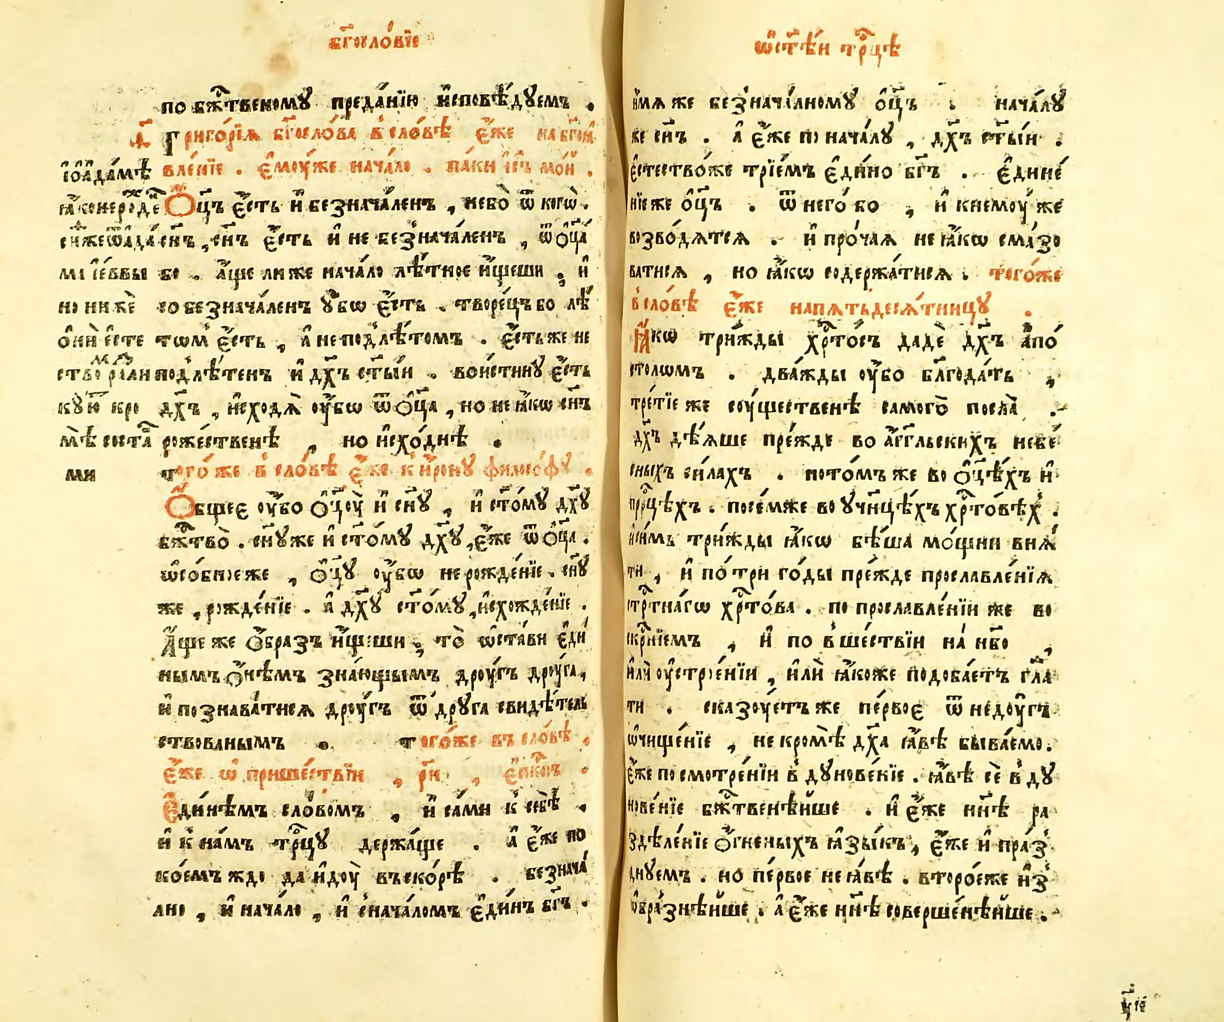 бг҃ословїе
по бж҃твеному преда́нїю и҆сповѣ́дуемъ .
григо́рїѧ бг҃осло́ва в̾ сло́вѣ є҆́же на бг҃оѧ҆
вле́нїе . є҆му́же нача́ло . па́ки і҆с҃ъ мо́й .
Ѻ҆ц҃ъ є҆́сть и҆ безнача́ленъ , небо̀ ѿ кого̀ .
сн҃ъ є҆́сть и҆ не безнача́ленъ , ѿ ѻ҆ц҃а̀
бо . а҆́ще ли же нача́ло лѣ́тное и҆́щеши , и҆
собезнача́ленъ у҆́бѡ є҆́сть . творе́цъ бо лѣ́
томъ є҆́сть , а҆ не под̾ лѣ́томъ . є҆́сть же не
под̾лѣ́тенъ и҆ дх҃ъ ст҃ы́и . вои́стину є҆́сть
дх҃ъ , и҆сходѧ̀ ѹ҆́бѡ ѿ ѻ҆ц҃а , но не ꙗ҆́кѡ сн҃ъ
рожестве́нѣ , но и҆схо́днѣ .
і҆ѡ҆а́дамѣ
ꙗ҆́ко нероде́
ми і҆є҆́ввы
но нижѐ
ѻ҆нѝ є҆сте
ство ра́ли
кую̀ кро
мѣ̀ систа
ми
того́же в̾ сло́вѣ є҆́же к̾ и҆́рону филосо́фу .
Ѻ҆́бщее ѹ҆́бо ѻ҆ц҃у̀ и҆ сн҃у , и҆ ст҃о́му дх҃у
бж҃тво̀ . сн҃у же и҆ ст҃о́му дх҃у , є҆́же ѿ ѻ҆ц҃а .
ѡ҆со́бное же , ѻ҆ц҃у ѹ҆́бѡ нерожде́нїе . сн҃у
же , рожде́нїе . а҆ дх҃у ст҃о́му , и҆схожде́нїе .
А҆́ще же ѻ҆́бразъ и҆́щеши , то̀ ѡ҆ста́ви є҆ди́
нымъ ѻ҆нѣ́мъ зна́ющымъ дру́гъ дру́га ,
и҆ познава́тисѧ дру́гъ ѿ дру́га свидѣ́тель
ствованымъ . того́же въ сло́вѣ ,
є҆́же ѡ҆ прише́ствїи , р҃н , є҆пи́скоп .
Є҆ди́нѣмъ сло́вомъ , и҆ са́ми к̾ себѣ̀ ,
и҆ к̾ на́мъ тр҃цу держа́ще . а҆ є҆́же по
ко́емъждо да и҆ду́ въско́рѣ . безнача́
лно , и҆ нача́ло , и҆ с̾нача́ломъ є҆ди́нъ бг҃ъ .
ѡ҆ ст҃ѣ́и тр҃цѣ
и҆́мѧ же безнача́лному ѻ҆ц҃ъ . нача́лу
же сн҃ъ . а҆ є҆́же по нача́лу , дх҃ъ ст҃ы́и .
є҆стество́же трїе́мъ є҆ди́но бг҃ъ . є҆дине́
нїе же ѻ҆ц҃ъ . ѿ него́ бо , и҆ к нему́ же
возво́дѧтсѧ . и҆ про́чаѧ не ꙗ҆́кѡ смазо
ватисѧ , но ꙗ҆́кѡ содержа́тисѧ . того́же
в̾ сло́вѣ є҆́же на пѧтьдесѧ́тницу .
Ꙗ҆́кѡ три́жды хр҃то́съ дадѐ дх҃ъ а҆по́
столѡмъ . два́жды ѹ҆́бо бл҃года́ть ,
тре́тїе же су́щественѣ самого̀ посла̀ .
дх҃ъ дѣ́ѧше пре́жде во а҆́гг҃льскихъ небе́
сныхъ си́лахъ . пото́мъ же во ѻ҆ц҃ѣ́хъ и҆
пр҃ро́цѣхъ . посе́мже во у҆ч҃ницѣ́хъ хр҃то́вѣхъ .
и҆ си́мъ три́жды ꙗ҆́кѡ бѣ́ша мо́щни внѧ́
ти , и҆ по́ три го́ды пре́жде прославле́нїѧ
стр҃тна́гѡ хр҃то́ва . по прославле́нїи же во
скр҃нїемъ , и҆ по в̾ше́ствїи на́ нб҃о ,
и҆лѝ ѹ҆строе́нїи , и҆́лѝ ꙗ҆́коже подоба́етъ гл҃а
ти . сказу́етъ же пе́рвое ѿ неду́гъ
ѡ҆чище́нїе , не кромѣ̀ дх҃а ꙗ҆́вѣ быва́емо .
є҆́же по смотре́нїи в̾дунове́нїе . ꙗ҆́вѣ сѐ в̾ду
нове́нїе бж҃тве́нѣйше . и҆ є҆́же нн҃ѣ ра
здѣле́нїе ѻ҆́гненыхъ ꙗ҆зы́къ , є҆́же и҆ пра́з̾
днуемъ . но пе́рвое не ꙗ҆́вѣ . второ́еже и҆з̾
ѡ҆бра́знѣйше . а҆ є҆́же нн҃ѣ соверше́нѣйше .